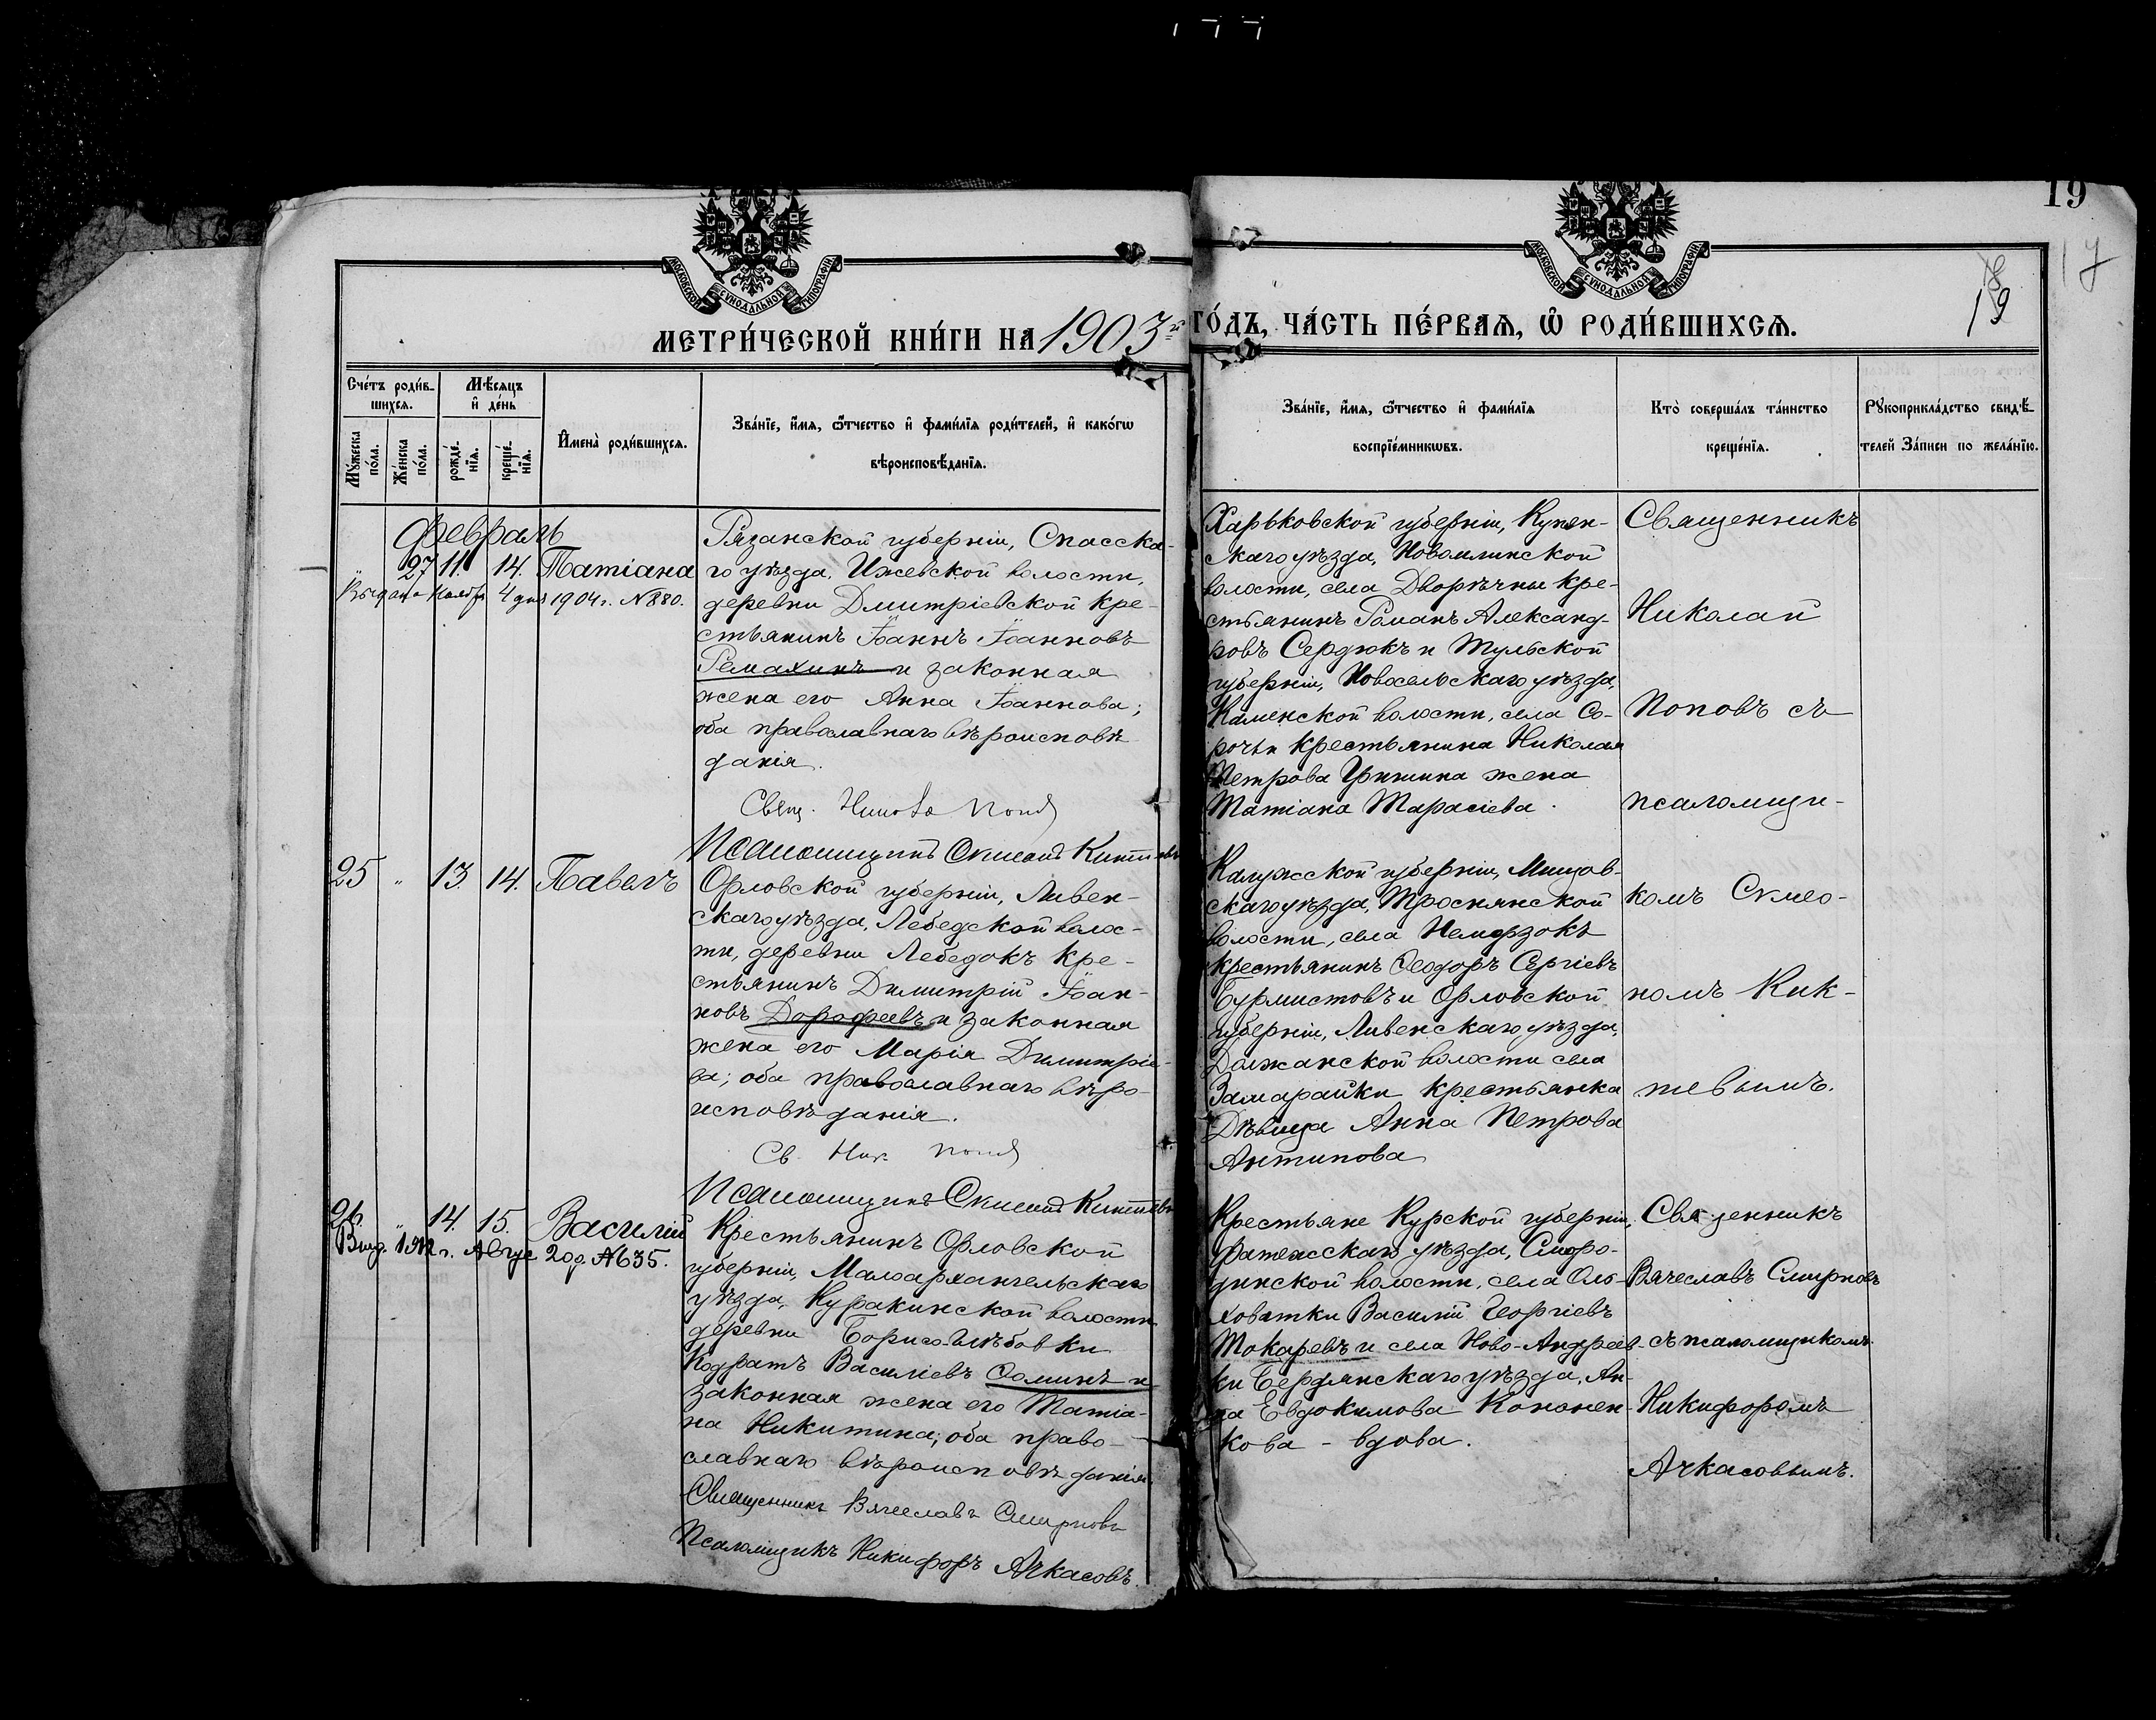 19
17
18
19
МОСКОВСКОЙ СѴНОДАЛЬНОЙ ТИПОГРАФІИ
МОСКОВСКОЙ СѴНОДАЛЬНОЙ ТИПОГРАФІИ
МЕТРИ́ЧЕСКОЙ КНИ́ГИ НА 1903й
ГО́ДЪ, ЧА́СТЬ ПЕ́РВАЯ, Ѽ РОДИ́ВШИХСЯ.
Сче́тъ роди́в-
шихся.
Му́жеска
по́ла.
Же́нска
по́ла.
Мѣ́сяцъ
и҆ де́нь
рожде́-
нїя.
креще́-
нїя.
И҆мена̀ роди́вшихся.
Зва́нїе, и҆́мя, ѻ҆́тчество и҆ фами́лїя роди́телей, и҆ како́гѡ
вѣроисповѣ́данїя.
Зва́нїе, и҆́мя, ѻ҆́тчество и҆ фами́лїя
воспрїе́мникѡвъ.
Кто̀ соверша́лъ та́инство
креще́нїя.
Рꙋкоприкла́дство свидѣ́-
телей за́писи по жела́нїю.
Февраль
" 27 11. 14. Татіана
Выдано Ноября 4 дня 1904 г. № 880.
Рязанской губерніи, Спасска-
го уѣзда, Ижевской волости,
деревни Дмитріевской кре-
стьянинъ Іоаннъ Іоанновъ
Ремахинъ и законная
жена его Анна Іоаннова;
оба православнаго вѣроисповѣ
данія.
Свящ.
Псаломщикъ
Харьковской губерніи, Купен-
скаго уѣзда, Новомлинской
волости, села Дворѣчны кре-
стьянинъ Романъ Александ-
ровъ Сердюкъ и Тульской
губерніи, Новосельскаго уѣзда,
Каменской волости, села Со-
рочьи крестьянина Николая
Петрова Гришина жена
Татіана Тарасіева.
Священникъ
Николай
Поповъ съ
псаломщи-
25 " 13. 14. Павелъ
Орловской губерніи, Ливен-
скаго уѣзда, Лебедской волос-
ти, деревни Лебедокъ кре-
стьянинъ Димитрій Іоан-
новъ Дорофеевъ и законная
жена его Марія Димитріе-
ва; оба православнаго вѣро-
исповѣданія.
Св. Ник.
Псаломщикъ
Калужской губерніи, Мищов-
скаго уѣзда, Троснянской
волости, села
крестьянинъ Ѳеодоръ Сергіевъ
Бурмистовъ и Орловской
губерніи, Ливенскаго уѣзда,
Должанской волости села
Замарайки крестьянка
Дѣвица Анна Петрова
Антипова
комъ Симео-
номъ Кик-
тевымъ.
26 " 14. 15. Василій
Выд. 1912 г. Авгус 20 д. № 635.
Крестьянинъ Орловской
губерніи, Малоархангельскаго
уѣзда, Куракинской волости
деревни Борисо-Глѣбовки
Кодратъ Василіевъ Ѳоминъ и
законная жена его Татіа-
на Никитина; оба право-
славнаго вѣроисповѣданія.
Священникъ Вячеславъ Смирновъ
Псаломщикъ Никифоръ Ачкасовъ
Крестьяне Курской губерніи,
Фатежскаго уѣзда, Сморо-
динской волости, села Оль-
ховатки Василій Георгіевъ
Токаревъ и села Ново-Андреев-
ки Бердянскаго уѣзда, Ан-
на Евдокимова Кононен-
кова - вдова.
Священникъ
Вячеславъ Смирновъ
съ псаломщикомъ
Никифоромъ
Ачкасовымъ.